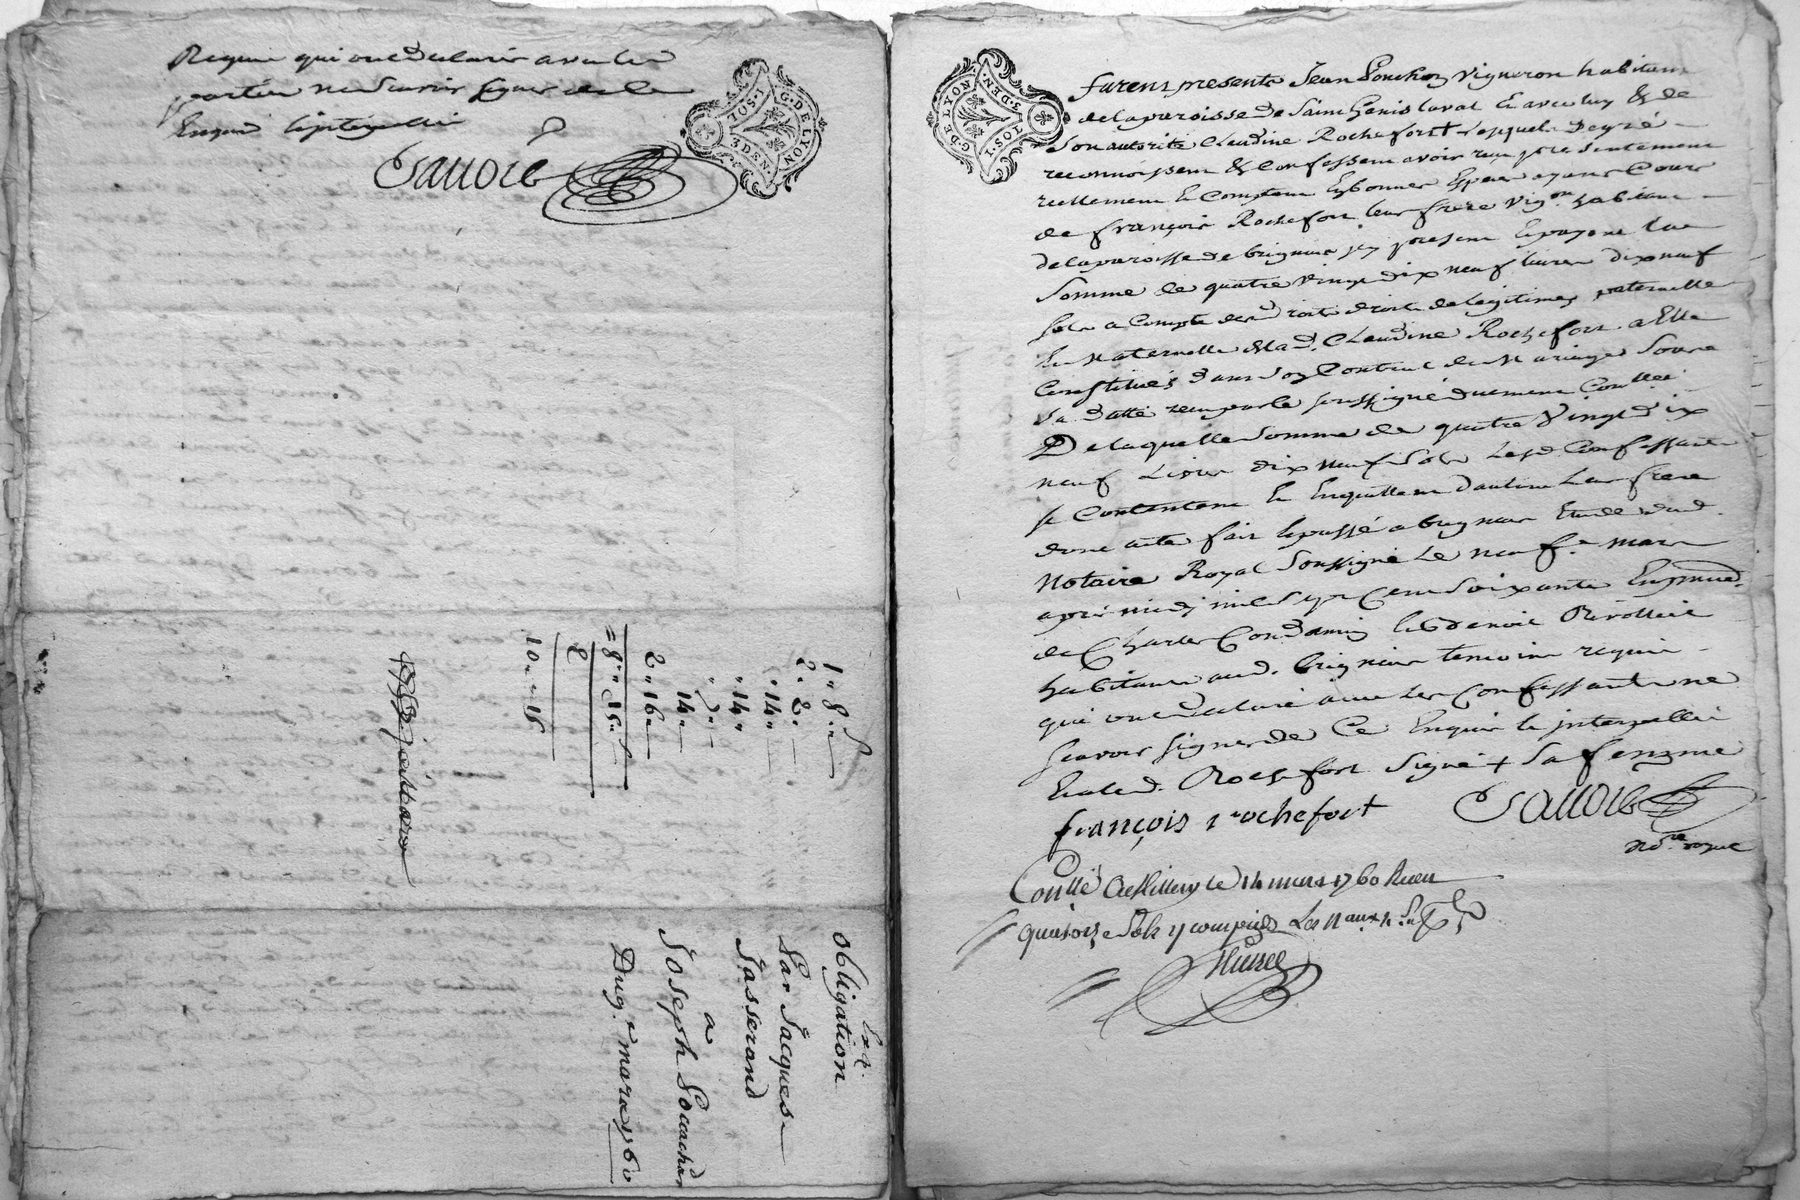 Requis qui ont declaré avec les
parties ne scavoir signer de ce
Enquis Interpellés
Sauvoie
G. DE LYON
I. SOL
3 DEN.
1 „ 8 „
2 „ 2 „
„ 14 „
„ 14 „
„ 7 „
„ 14 „
2 „ 16 „
= 8 „ 15 „
2
10 „ „ 15
Ext.
obligation
Par Jacques
Jasserand
a
Joseph
Du 9e mars 1760
G. DE LYON
3. DEN.
I. SOL
furent presents Jean Ponchon vigneron habitant
de la paroisse de Saint Genis laval Et avec luy & de
Son autorité Claudine Rochefort Lesquels de gré
reconnoissent & Confessent avoir reçu presentement
reellement Et Comptant En bonnes Especes ayant Cours
de françois Rochefort leur frere vigon habitant
de la paroisse de brignais icy present Et payant la
Somme de quatre vingt dix neuf livres dix neuf
sols a Compte des droits de legitimes paternelle
Et Maternelle de lad. Claudine Rochefort a Elle
Constitués dans son Contrat de Mariage Sous
Sa datte reçu par le soussigné duement Conttlé
De laquelle Somme de quatre Vingt dix
neuf Livres dix neuf Sols Lesd. Confessants
se Contentent Et En quittent Leur frere
dont acte fait Et passé a brignais Etude dud.
Notaire Royal Soussigné Le neufe mars
après midy mil sept Cent Soixante En presence
de Charles Condamin Et Benoit Rivollier
habitants aud. brignais temoins requis
qui ont declaré avec les Confessants ne
scavoir signer de Ce Enquis Et interpellés
Et led. Rochefort Signé + Sa femme
françois rochefort
Sauvoie
Nore royal
Conttlé a St Millery le 14 mars 1760 Reçu
quatorze Sols y compris Les